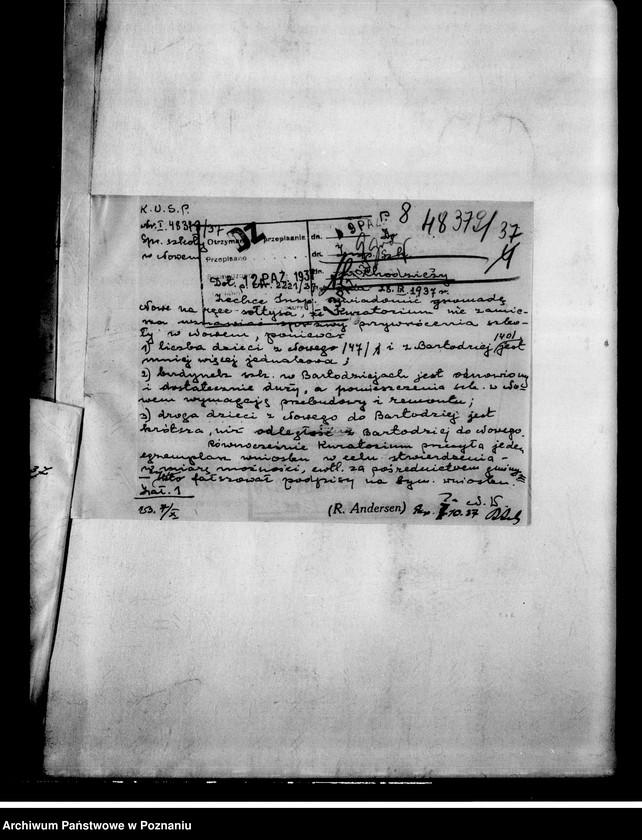 K.U.S.P.
Nr. I. 48379/37
8 48379/37
Spr. szkoły
w Nowem
Otrzymano przepisanie dn.
DZ
9 PAŹ.
Przepisano dn.
2 PAŹ. 1937
Insp. Szk.
Chodzieży
Dot. p. Nr. 2221/37 z dnia 28.IX.1937 r.
Zechce Insp. zawiadomić gromadę
Nowe na ręce sołtysa, że Kuratorium nie zamie-
rza wznawiać sprawy przywrócenia szko-
ły w Nowem, ponieważ
1) liczba dzieci z Nowego /47/ i z Bartodziej /40/ jest
mniej więcej jednakowa;
2) budynek szk. w Bartodziejach jest odnowiony
i dostatecznie duży, a pomieszczenia szk. w No-
wem wymagają przebudowy i remontu;
3) droga dzieci z Nowego do Bartodziej jest
krótsza, niż odległość z Bartodziej do Nowego.
Równocześnie Kuratorium przesyła jeden
egzemplarz wniosku w celu stwierdzenia -
w miarę możności, ewtl. za pośrednictwem gminy
- kto fałszował podpisy na tym wniosku.
Zał. 1
253. 7/X
(R. Andersen)
10.37
Archiwum Państwowe w Poznaniu